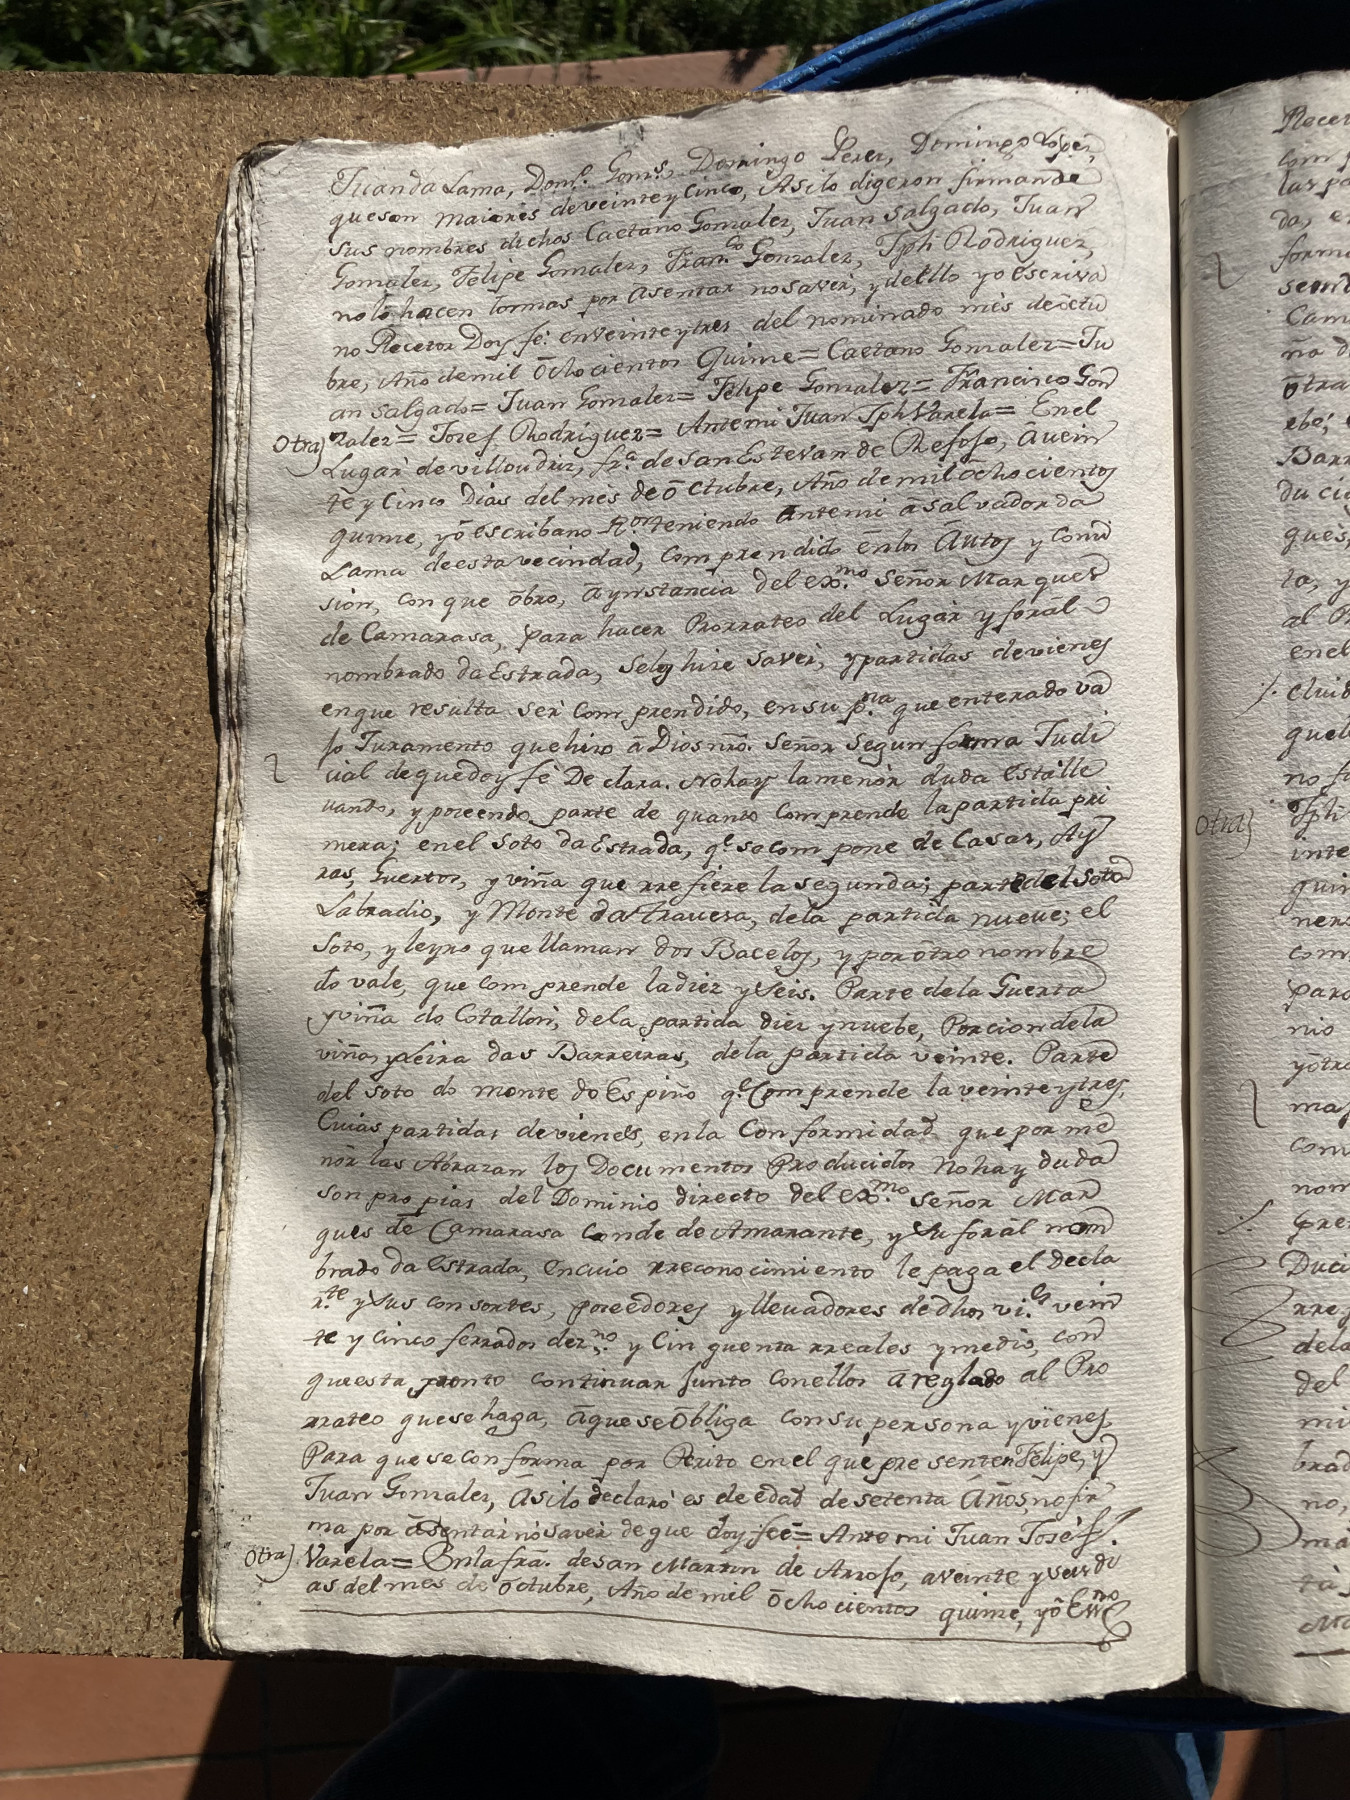 Juan da Lama, Domº. Gomˢ., Domingo Perez, Domingo Lopez,
que son maiores de veinte y cinco, Asilo digeron firman de
sus nombres dichos Caetano Gonzalez, Juan Salgado, Juan
Gonzalez, Felipe Gonzalez, Franᶜᵒ Gonzalez, Jph Rodriguez,
no lo hacen los mas por asentar no saver, y de ello yo Escriva
no Recetor Doy fe: en veinte y tres del nominado mes de octu
bre, Año de mil ochocientos Quinze = Caetano Gonzalez = Ju
an Salgado = Juan Gonzalez = Felipe Gonzalez = Francisco Gon
Otra) zalez = Josef Rodriguez = Antemi Juan Jph Varela = En el
Lugar de villoudriz, frª. de San Estevan de Refojo, á vein
te y cinco Dias del mes de octubre, Año de mil ochocientos
quinze, yo escribano Rᵒʳ teniendo Antemi á Salvador da
Lama de esta vecindad, comprendido en los Autos y comi
sion, con que obro, á ynstancia del exᵐᵒ. Señor Marques
de Camarasa, para hacer Prorrateo del Lugar y foral
nombrado da Estrada, se lo hize saver, y partidas de vienes
en que resulta ser comprendido, en su pⁿᵃ. que enterado va
jo Juramento que hizo á Dios nrõ. Señor segun forma Judi
cial de que doy fé Declara. No hay la menor duda está lle
vando, y poseendo parte de quanto comprende la partida pri
mera; en el Soto da Estrada, qᵉ se compone de Casas, Ay
ras, Guertos, y viña que rrefiere la segunda; parte del Soto
Labradio, y Monte da Travesa, dela partida nueve; el
Soto, y leyro que llaman dos Bacelos, y por otro nombre
do vale, que comprende la diez y Seis. Parte dela Guerta
y viña do Cotallon, de la partida diez y nuebe, Porcion dela
viña y Leira das Barreiras, dela partida veinte. Parte
del Soto do monte do Espiño qᵉ Comprende la veinte y tres,
Cuias partidas de vienes, en la Conformidad que por me
nor las Abrazan los Documentos Producidos no hay duda
son propias del Dominio directo del exᵐᵒ. Señor Mar
ques de Camarasa Conde de Amarante, y su foral nom
brado da Estrada, en cuio rreconocimiento le paga el decla
rᵗᵉ. y sus consortes, poseedores y llevadores de dhos viᵉˢ. vein
te y cinco ferrados de zⁿᵒ. y cinquenta rreales y medio, con
que esta pronto continuar junto con ellos areglado al Pro
rrateo que se haga, á que se obliga con su persona y vienes
Para que se conforma por Perito en el que presenten Felipe, y
Juan Gonzalez, Asilo declaró es de edad de setenta Años, no fir
ma por asentar no saver de que doy fee = Antemi Juan Josef
Otra) Varela = En la frã. de San Martin de Arrojo, a veinte y seis di
as del mes de octubre, Año de mil ochocientos quinze, yo Essⁿᵒ